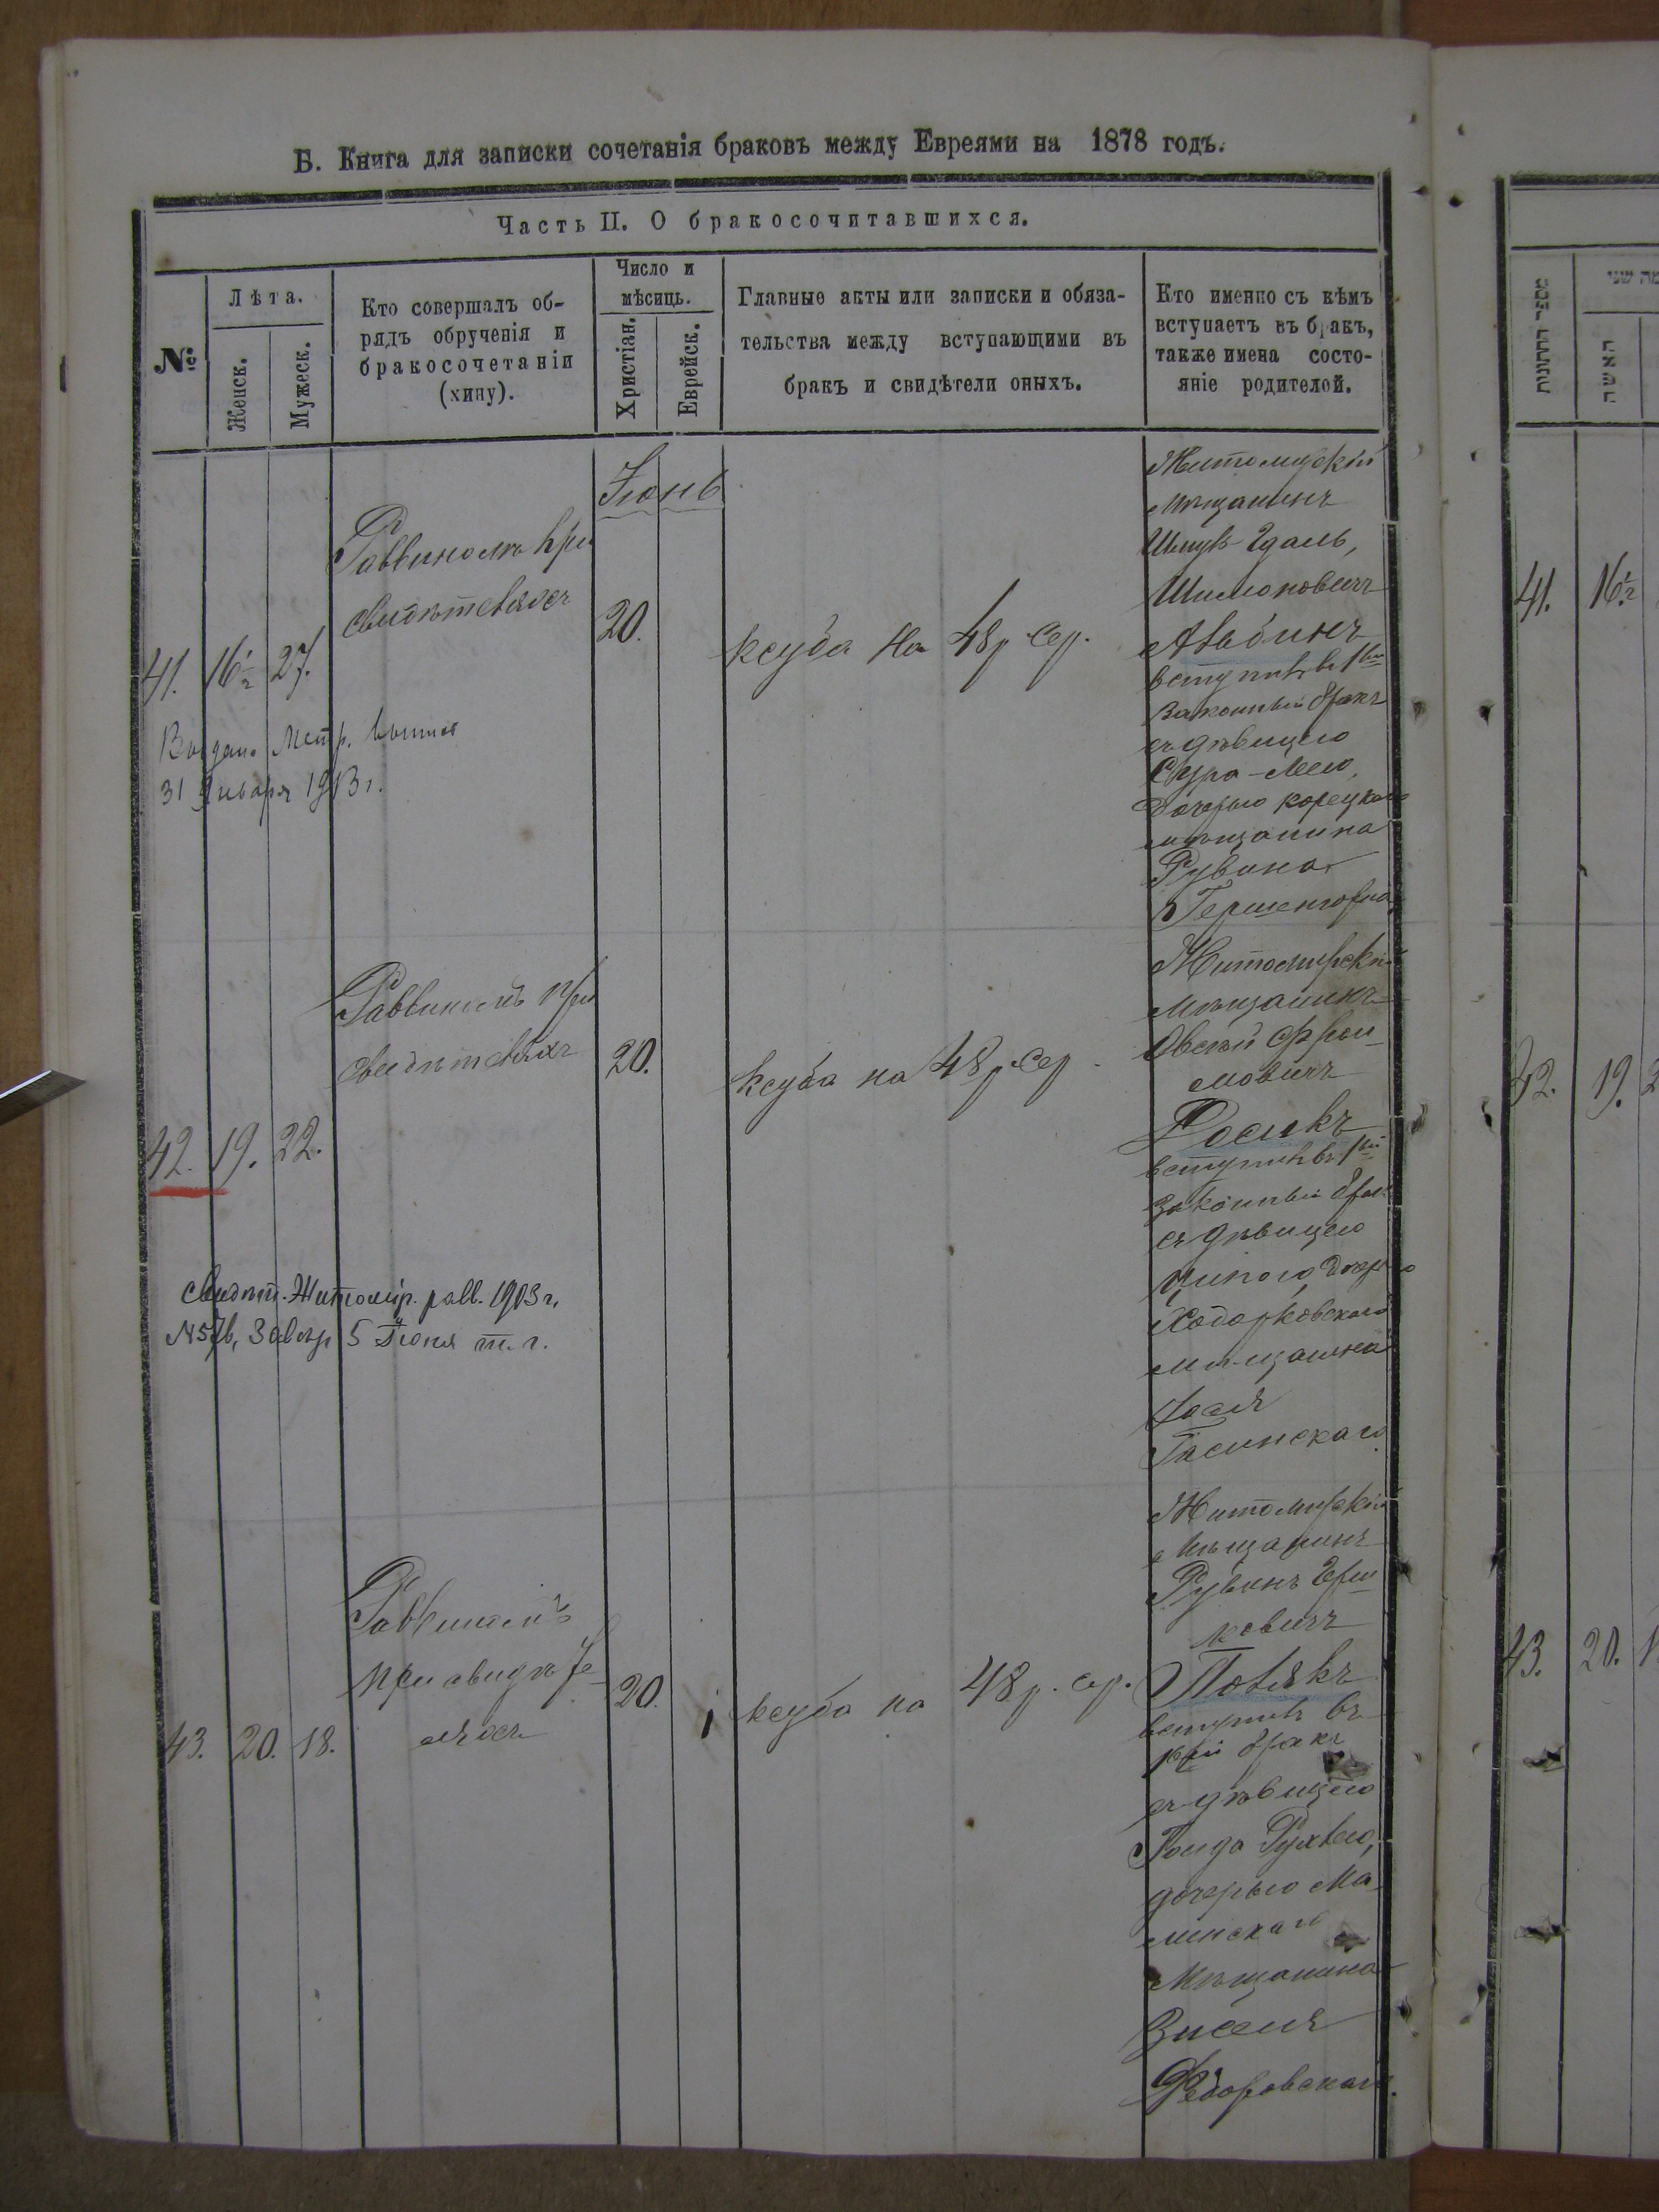 Б. Книга для записки сочетанія браковъ между Евреями на 1878 годъ.
Часть II. О бракосочитавшихся.
№
Лѣта.
Женск.
Мужеск.
Кто совершалъ об-
рядъ обрученія и
бракосочетаніи
(хину).
Число и
мѣсяцъ.
Христіан.
Еврейск.
Главные акты или записки и обяза-
тельства между вступающими въ
бракъ и свидѣтели оныхъ.
Кто именно съ кѣмъ
вступаетъ въ бракъ,
также имена состо-
яніе родителей.
Іюнь
41. 16½ 27.
Раввиномъ при
свидѣтеляхъ
20.
ксуба на 48 р. сер.
Житомирскій
мѣщанинъ
Шмуль-Эдаль,
Шимоновичъ
Альбинъ
вступилъ въ 1ый
законный бракъ
съ дѣвицею
Сура-Лею,
дочерью корецкаго
мѣщанина
Рувина
Гершенгорна
Выдана Метр. выпись
31 Января 1913 г.
42. 19. 22.
Раввиномъ при
свидѣтеляхъ
20.
ксуба на 48 р. сер.
Житомирскій
мѣщанинъ
Овсей Фрои-
мовичъ
вступилъ въ 1ый
законный бракъ
съ дѣвицею
Ципою дочерью
Ходорковскаго
мѣщанина
Іося
Свидѣт. Житомір. равв. 1903 г.
5 Іюня т. г.
43. 20. 18.
Раввиномъ
при свидѣте-
ляхъ
20.
ксуба на 48 р. сер.
Житомирскій
мѣщанинъ
Рувинъ Ерш-
ковичъ
Полякъ
вступилъ въ
1ый бракъ
съ дѣвицею
Рухлею,
дочерью Ма-
линскаго
мѣщанина
Зиселя
Федоровскаго.
מספר החתונות
האשה
41. 16½
42. 19.
43. 20.